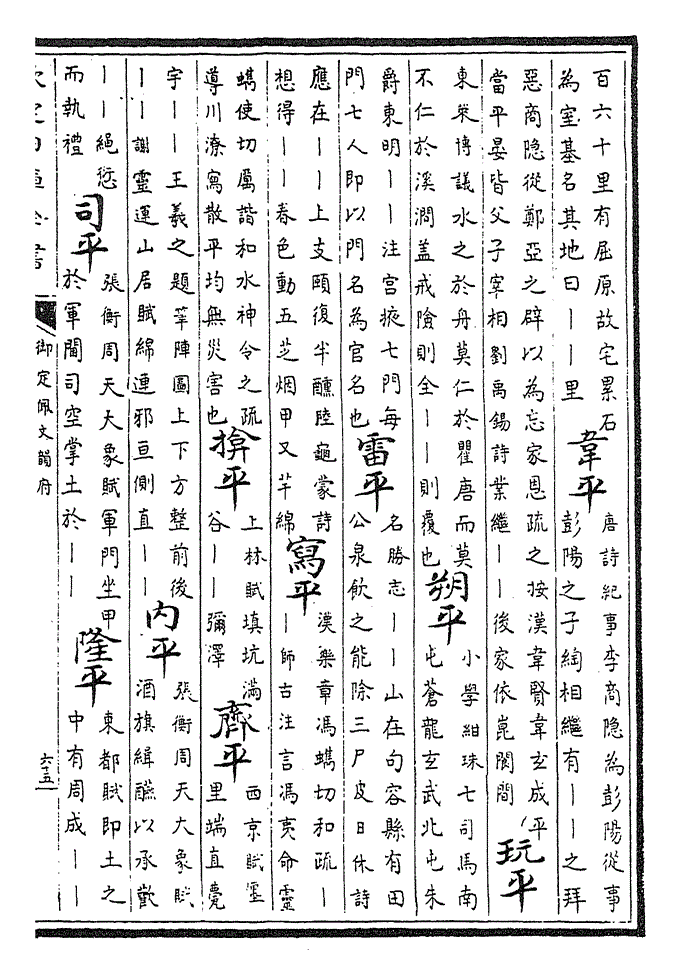 百六十里有屈原故宅累石
為室基名其地曰｜｜里
韋平
唐詩紀事李商隱為彭陽從事
彭陽之子綯相繼有｜｜之拜
惡商隱從鄭亞之辟以為忘家恩疏之按漢韋賢韋玄成平
當平晏皆父子宰相劉禹錫詩業繼｜｜後家依崑閬間
玩平
東萊博議水之於舟莫仁於瞿唐而莫
不仁於溪澗蓋戒險則全｜｜則覆也
朔平
小學紺珠七司馬南
屯蒼龍玄武北屯朱
爵東明｜｜注宮掖七門每
門七人即以門名為官名也
雷平
名勝志｜｜山在句容縣有田
公泉飲之能除三尸皮日休詩
應在｜｜上支頤復半醺陸龜蒙詩
想得｜｜春色動五芝烟甲又芊綿
寫平
漢樂章馮蠵切和疏｜
｜師古注言馮夷命靈
蠵使切厲諧和水神令之疏
導川潦寫散平均無災害也
揜平
上林賦填坑滿
谷｜｜彌澤
齊平
西京賦墱
里端直甍
宇｜｜王羲之題筆陣圖上下方整前後
｜｜謝靈運山居賦綿連邪亘側直｜｜
內平
張衡周天大象賦
酒旗緝醼以承歡
｜｜繩愆
而執禮
司平
張衡周天大象賦軍門坐甲
於軍閫司空掌土於｜｜
隆平
東都賦即土之
中有周成｜｜
欽定四庫全書
御定佩文韻府
六五